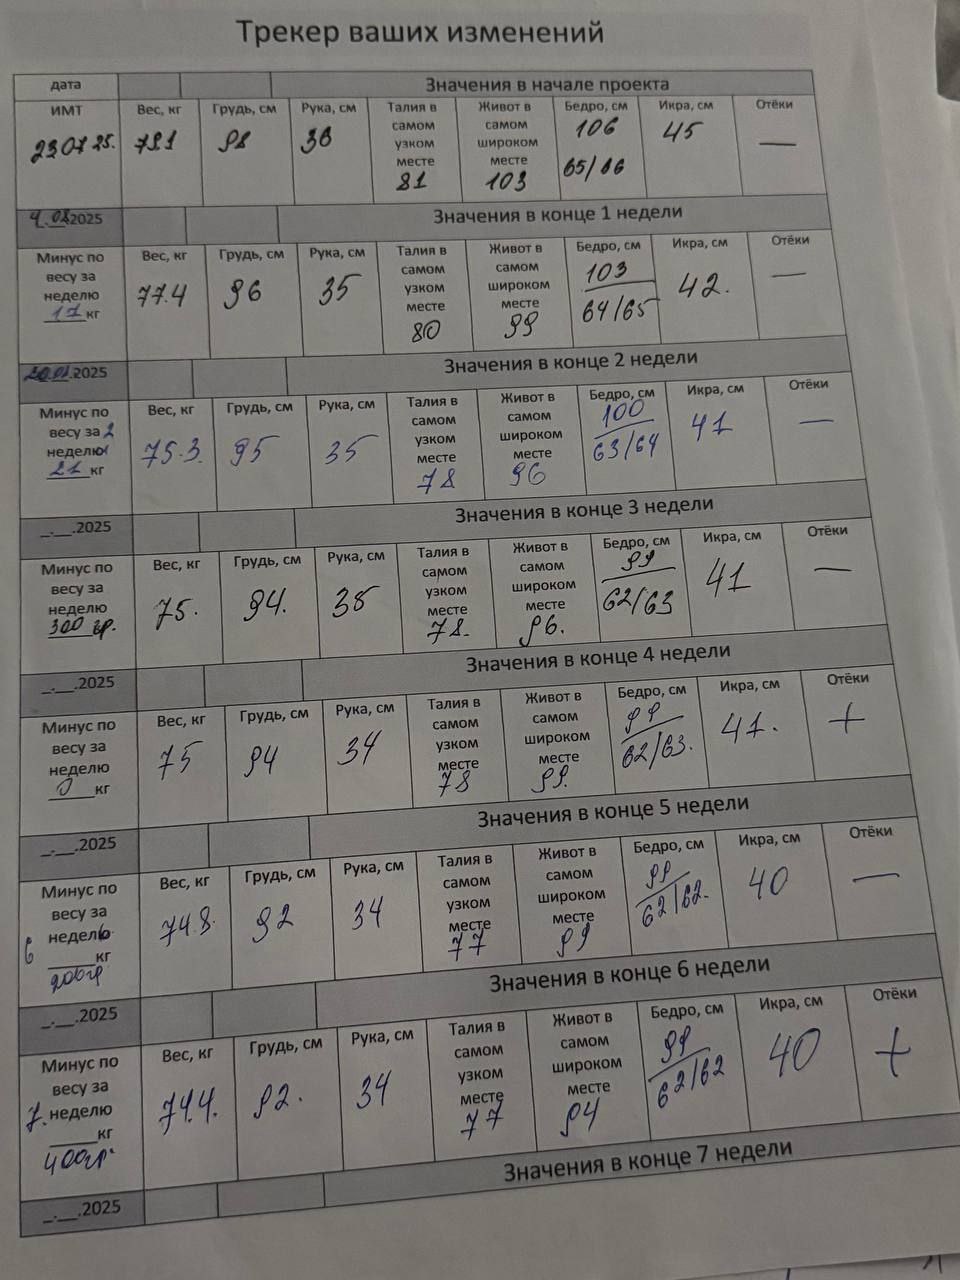 Трекер ваших изменений
дата Значения в начале проекта
ИМТ Вес, кг Грудь, см Рука, см Талия в самом узком месте Живот в самом широком месте Бедро, см Икра, см Отёки
23.07.25. 79.1 98 36 81 103 106 65/66 45 —
4.08.2025 Значения в конце 1 недели
Минус по весу за неделю 1,7 кг Вес, кг Грудь, см Рука, см Талия в самом узком месте Живот в самом широком месте Бедро, см Икра, см Отёки
77.4 96 35 80 99 103 64/65 42. —
.2025 Значения в конце 2 недели
Минус по весу за 2 неделю 2,1 кг Вес, кг Грудь, см Рука, см Талия в самом узком месте Живот в самом широком месте Бедро, см Икра, см Отёки
75.3. 95 35 78 96 100 63/64 41 —
_.__.2025 Значения в конце 3 недели
Минус по весу за неделю 300 гр. Вес, кг Грудь, см Рука, см Талия в самом узком месте Живот в самом широком месте Бедро, см Икра, см Отёки
75. 94. 35 78. 96. 99 62/63 41 —
_.__.2025 Значения в конце 4 недели
Минус по весу за неделю 0 кг Вес, кг Грудь, см Рука, см Талия в самом узком месте Живот в самом широком месте Бедро, см Икра, см Отёки
75 94 34 78 99. 99 62/63. 41. +
_.__.2025 Значения в конце 5 недели
6 Минус по весу за неделю ____кг 200гр Вес, кг Грудь, см Рука, см Талия в самом узком месте Живот в самом широком месте Бедро, см Икра, см Отёки
74.8. 92 34 77 99 99 62/62. 40 —
_.__.2025 Значения в конце 6 недели
7. Минус по весу за неделю ____кг 400гр. Вес, кг Грудь, см Рука, см Талия в самом узком месте Живот в самом широком месте Бедро, см Икра, см Отёки
74.4. 92. 34 77 94 99 62/62 40 +
_.__.2025 Значения в конце 7 недели